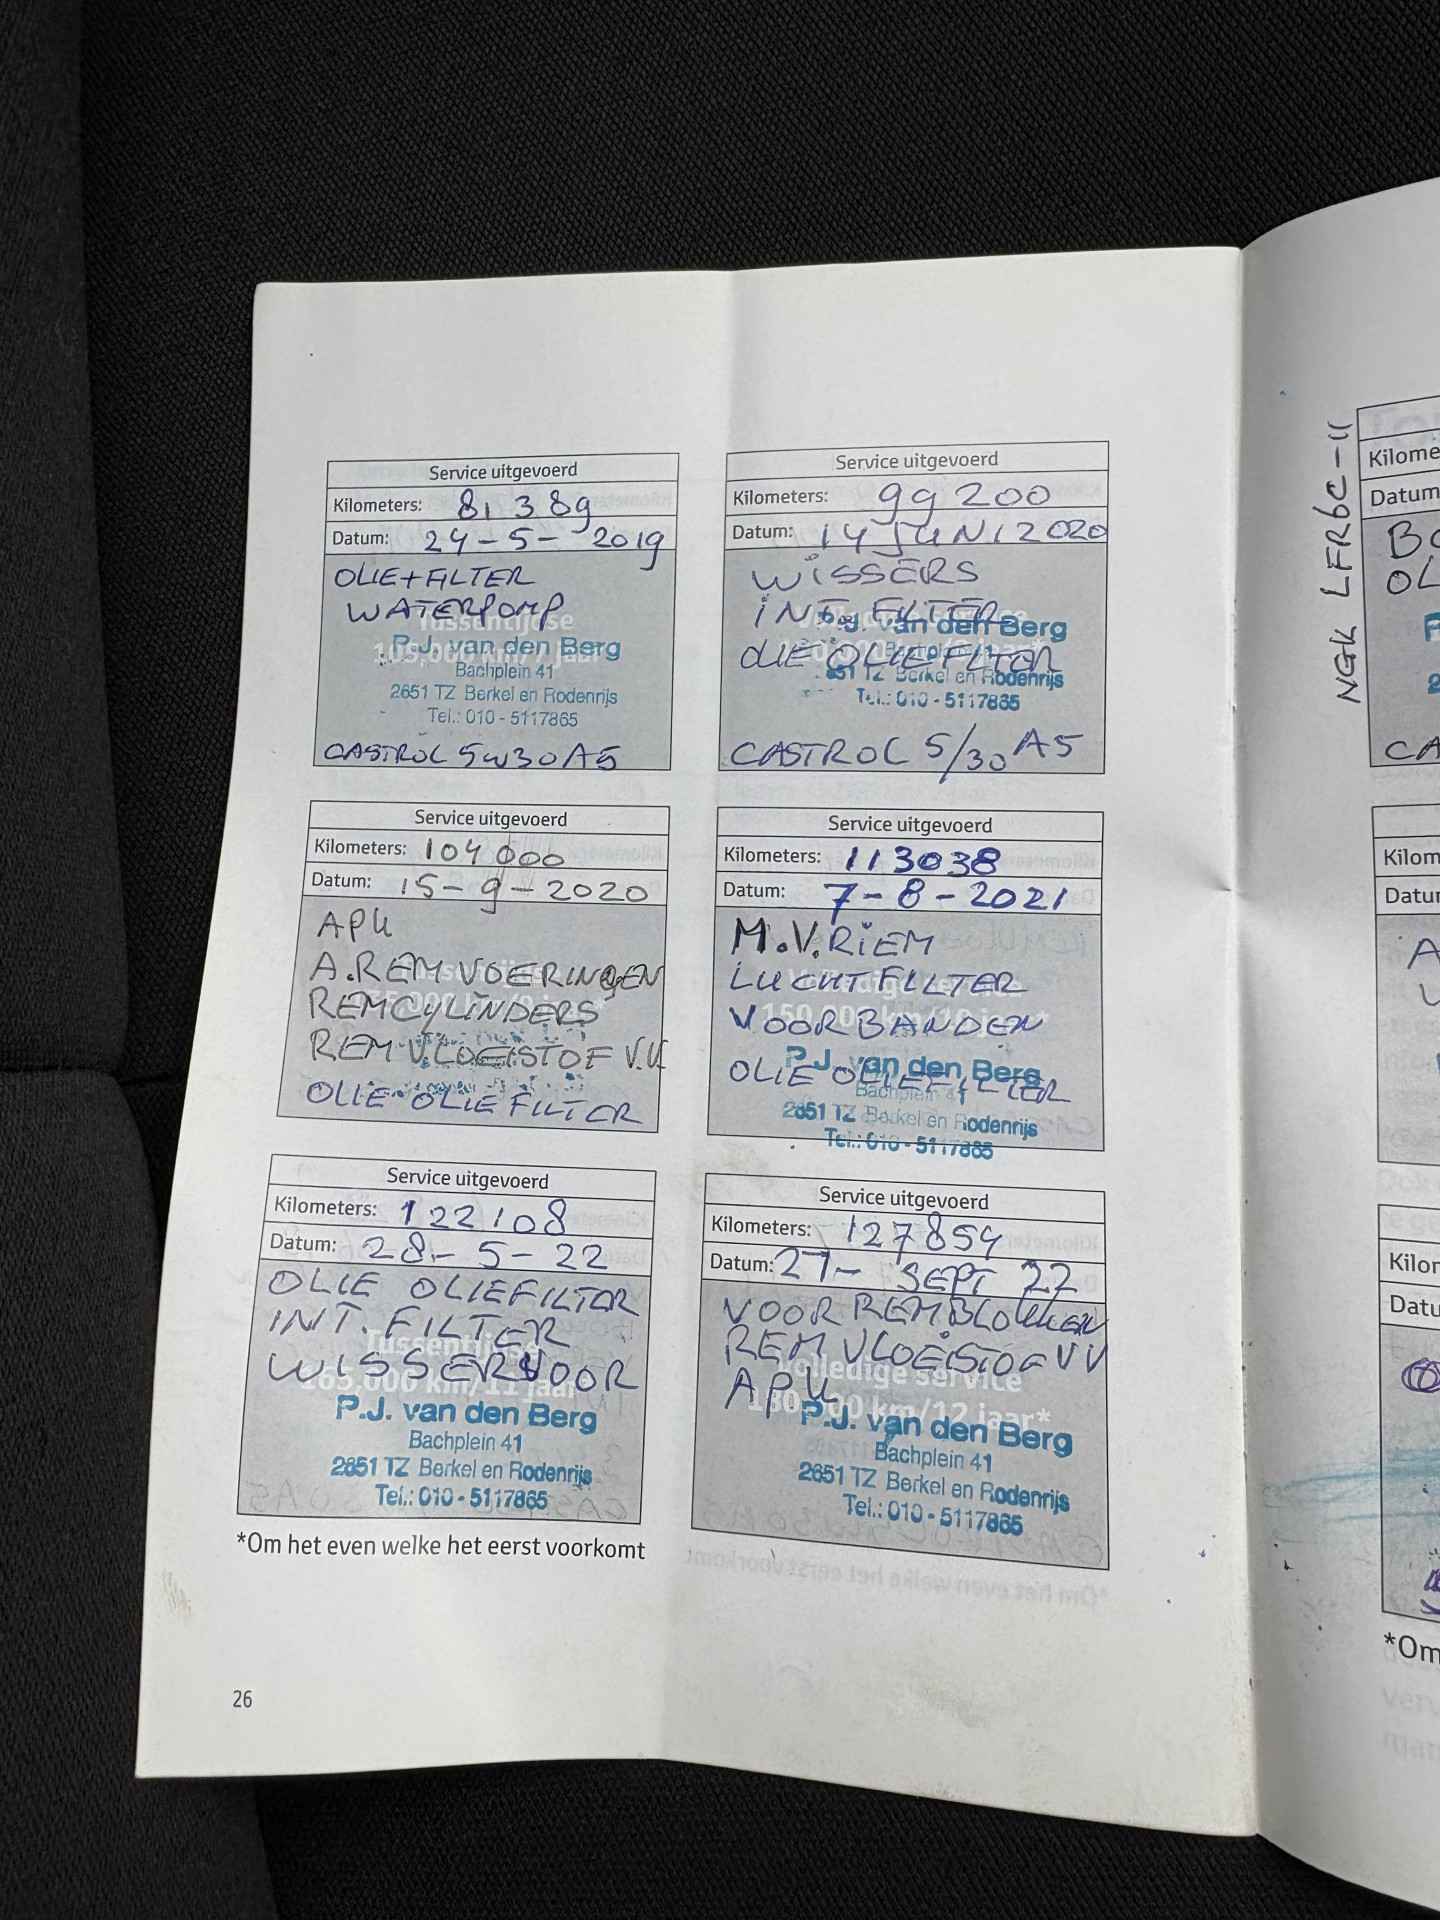 Service uitgevoerd
Kilometers: 81389
Datum: 24-5-2019
OLIE+FILTER
WATERPOMP
Tussentijdse
P.J. van den Berg
Bachplein 41
2651 TZ Berkel en Rodenrijs
Tel.: 010 - 5117865
CASTROL 5W30A5
Service uitgevoerd
Kilometers: 99200
Datum: 14 JUNI 2020
WISSERS
INT. FILTER
P.J. van den Berg
OLIE OLIEFLTER
Bachplein 41
2651 TZ Berkel en Rodenrijs
Tel.: 010 - 5117865
CASTROL 5/30 A5
Service uitgevoerd
Kilometers: 104000
Datum: 15-9-2020
APK
A.REMVOERINGEN
REMCYLINDERS
REMVLOEISTOF V.V
OLIE-OLIEFILTER
Service uitgevoerd
Kilometers: 113038
Datum: 7-8-2021
M.V.RIEM
LUCHTFILTER
Volledige service
150.000 km/10 jaar*
VOORBANDEN
P.J. van den Berg
OLIE OLIEFILTER
Bachplein 41
2651 TZ Berkel en Rodenrijs
Tel.: 010 - 5117865
Service uitgevoerd
Kilometers: 122108
Datum: 28-5-22
OLIE OLIEFILTER
INT. FILTER
Tussentijdse
WISSERVOOR
165.000 km/11 jaar
P.J. van den Berg
Bachplein 41
2651 TZ Berkel en Rodenrijs
Tel.: 010 - 5117865
Service uitgevoerd
Kilometers: 127854
Datum: 27- SEPT 22
VOORREMBLOKKEN
REMVLOEISTOF VV
Volledige service
APK
180.000 km/12 jaar*
P.J. van den Berg
Bachplein 41
2651 TZ Berkel en Rodenrijs
Tel.: 010 - 5117865
*Om het even welke het eerst voorkomt
26
NGK LFR6C-11
Kilome
Datum
OL
CA
Kilom
Datu
A
Kilor
Datu
*Om